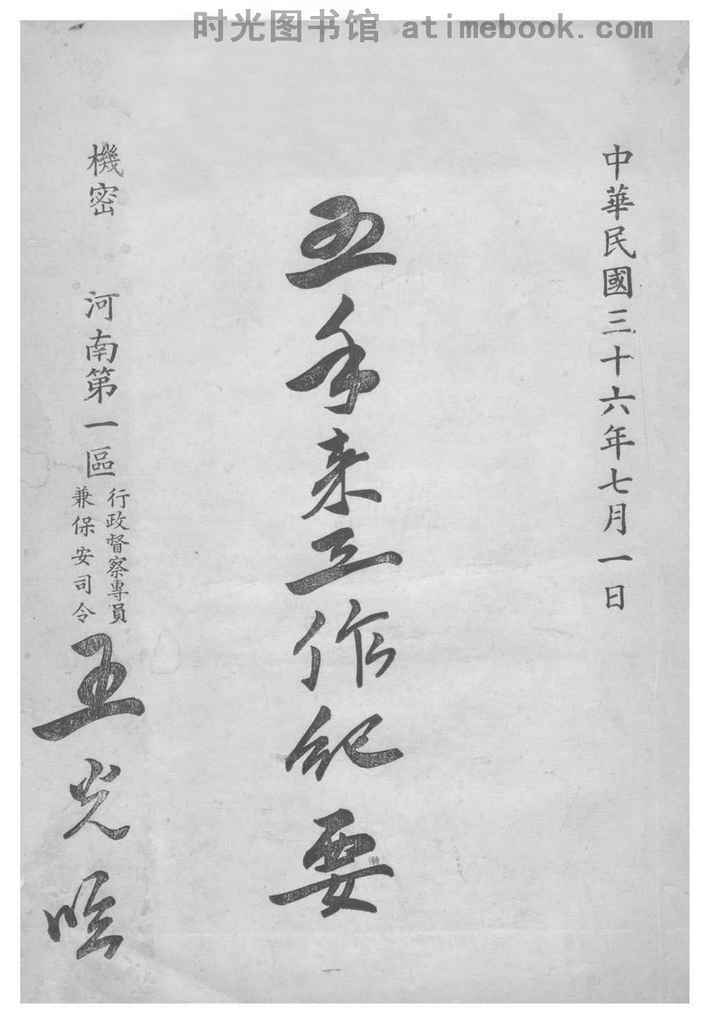 时光图书馆 atimebook.com
中華民國三十六年七月一日
五年来工作紀要
機密
河南第一區
行政督察專員
兼保安司令
王光臨